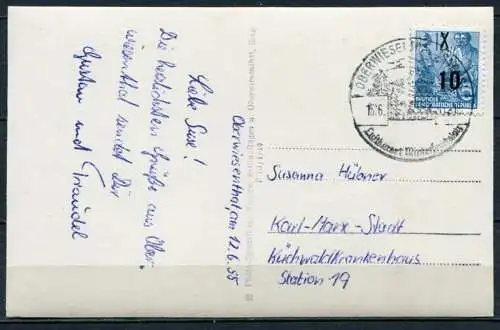 Oberwiesenthal, am 12.6.55
Liebe Susi!
Die herzlichsten Grüße aus Ober-
wiesenthal sendet Dir
Gustav und Traudel
Susanna Hübner
Karl-Marx-Stadt
Küchwaldkrankenhaus
Station 19
OBERWIESENTHAL
10
DEUTSCHE
DEMOKRATISCHE REPUBLIK